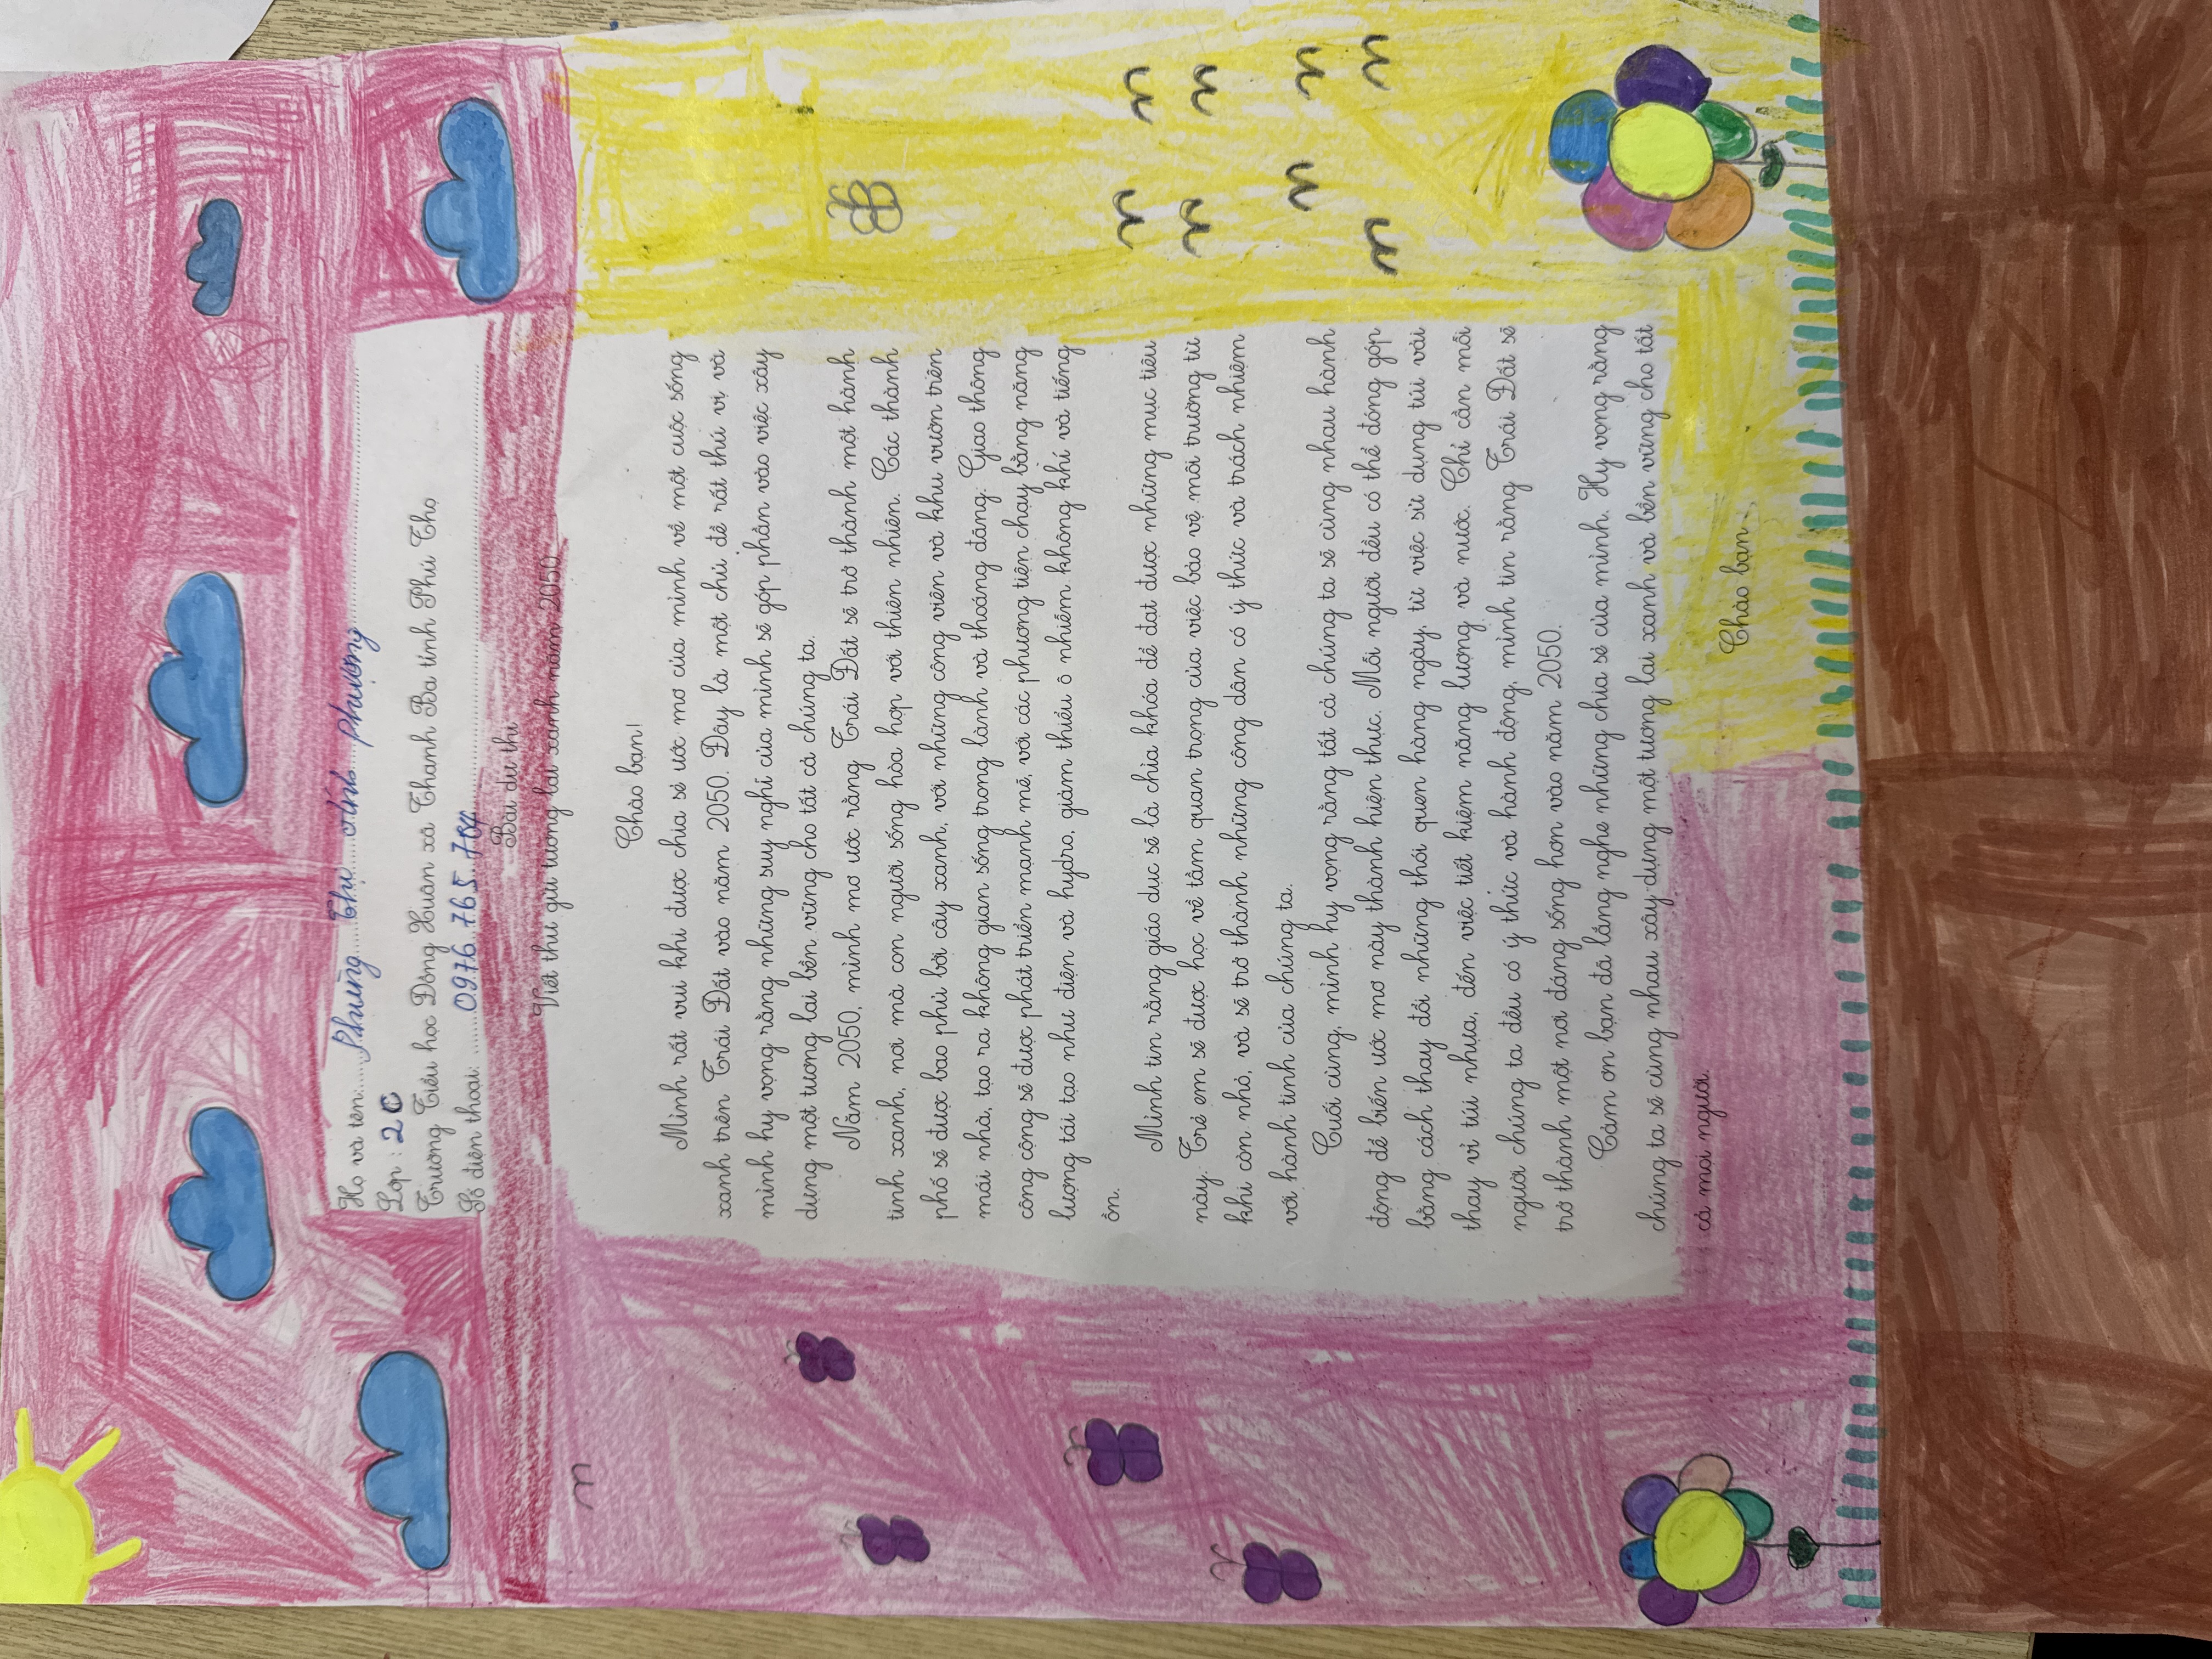 Họ và tên: Phùng Thị Ánh Phượng
Lớp : 2C
Trường Tiểu học Đông Xuân xã Thanh Ba tỉnh Phú Thọ
Số điện thoại: 0976.765.704
Bài dự thi
Viết thư gửi tương lai xanh năm 2050
Chào bạn!
Mình rất vui khi được chia sẻ ước mơ của mình về một cuộc sống
xanh trên Trái Đất vào năm 2050. Đây là một chủ đề rất thú vị và
mình hy vọng rằng những suy nghĩ của mình sẽ góp phần vào việc xây
dựng một tương lai bền vững cho tất cả chúng ta.
Năm 2050, mình mơ ước rằng Trái Đất sẽ trở thành một hành
tinh xanh, nơi mà con người sống hòa hợp với thiên nhiên. Các thành
phố sẽ được bao phủ bởi cây xanh, với những công viên và khu vườn trên
mái nhà, tạo ra không gian sống trong lành và thoáng đãng. Giao thông
công cộng sẽ được phát triển mạnh mẽ, với các phương tiện chạy bằng năng
lượng tái tạo như điện và hydro, giảm thiểu ô nhiễm không khí và tiếng
ồn.
Mình tin rằng giáo dục sẽ là chìa khóa để đạt được những mục tiêu
này. Trẻ em sẽ được học về tầm quan trọng của việc bảo vệ môi trường từ
khi còn nhỏ, và sẽ trở thành những công dân có ý thức và trách nhiệm
với hành tinh của chúng ta.
Cuối cùng, mình hy vọng rằng tất cả chúng ta sẽ cùng nhau hành
động để biến ước mơ này thành hiện thực. Mỗi người đều có thể đóng góp
bằng cách thay đổi những thói quen hàng ngày, từ việc sử dụng túi vải
thay vì túi nhựa, đến việc tiết kiệm năng lượng và nước. Chỉ cần mỗi
người chúng ta đều có ý thức và hành động, mình tin rằng Trái Đất sẽ
trở thành một nơi đáng sống hơn vào năm 2050.
Cảm ơn bạn đã lắng nghe những chia sẻ của mình. Hy vọng rằng
chúng ta sẽ cùng nhau xây dựng một tương lai xanh và bền vững cho tất
cả mọi người.
Chào bạn